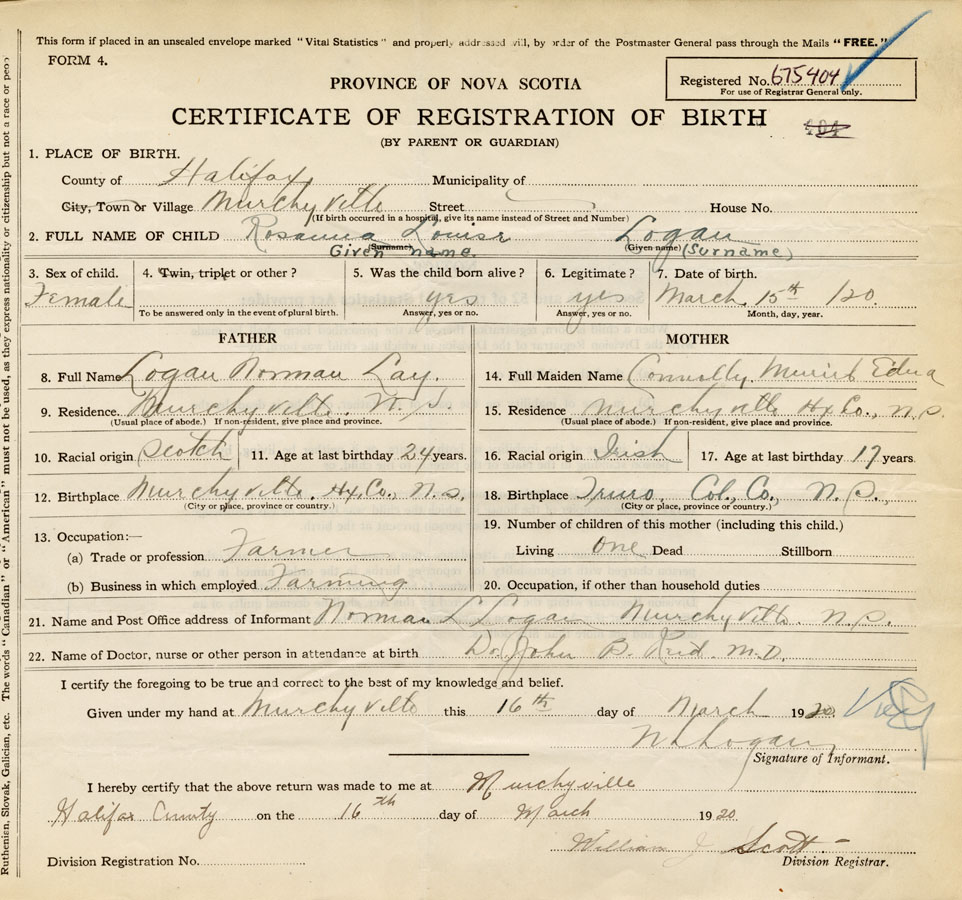 This form if placed in an unsealed envelope marked "Vital Statistics" and properly addressed will, by order of the Postmaster General pass through the Mails "FREE."
FORM 4.
Registered No. 675404
For use of Registrar General only.
PROVINCE OF NOVA SCOTIA
CERTIFICATE OF REGISTRATION OF BIRTH
404
(BY PARENT OR GUARDIAN)
1. PLACE OF BIRTH.
County of Halifax Municipality of
City, Town or Village Murchyville Street House No.
(If birth occurred in a hospital, give its name instead of Street and Number)
2. FULL NAME OF CHILD Rosanna Louise Logan
(Surname) Given name (Given name) (Surname)
3. Sex of child. 4. Twin, triplet or other? 5. Was the child born alive? 6. Legitimate? 7. Date of birth.
Female yes yes March 15th /20.
To be answered only in the event of plural birth. Answer, yes or no. Answer, yes or no. Month, day, year.
FATHER
8. Full Name Logan Norman Lay.
9. Residence Murchyville. N. S.
(Usual place of abode.) If non-resident, give place and province.
10. Racial origin Scotch 11. Age at last birthday 24 years.
12. Birthplace Murchyville. Hx. Co., N. S.
(City or place, province or country.)
13. Occupation:—
(a) Trade or profession Farmer
(b) Business in which employed Farming
MOTHER
14. Full Maiden Name Connolly, Edna
15. Residence Murchyville Hx Co., N. S.
(Usual place of abode.) If non-resident, give place and province.
16. Racial origin Irish 17. Age at last birthday 17 years.
18. Birthplace Truro, Col. Co., N. S.,
(City or place, province or country.)
19. Number of children of this mother (including this child.)
Living One Dead Stillborn
20. Occupation, if other than household duties
21. Name and Post Office address of Informant Norman L Logan Murchyville. N. S.
22. Name of Doctor, nurse or other person in attendance at birth Dr. John B. Reid M.D.
I certify the foregoing to be true and correct to the best of my knowledge and belief.
Given under my hand at Murchyville this 16th day of March 1920.
N L Logan
Signature of Informant.
I hereby certify that the above return was made to me at Murchyville
Halifax County on the 16th day of March 1920
William J Scott
Division Registration No. Division Registrar.
Ruthenian, Slovak, Galician, etc. The words "Canadian" or "American" must not be used, as they express nationality or citizenship but not a race or